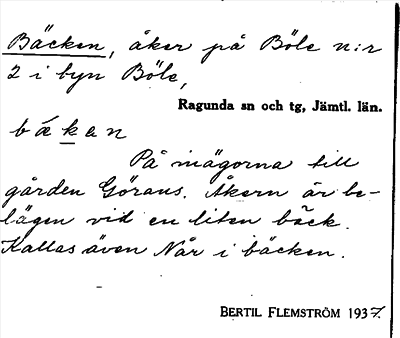 Bäcken, åker på Böle n:r
2 i byn Böle,
Ragunda sn och tg, Jämtl. län.
bækən
På inägorna till
gården Görans. Åkern är be-
lägen vid en liten bäck.
Kallas även Når i bäcken.
BERTIL FLEMSTRÖM 1937.